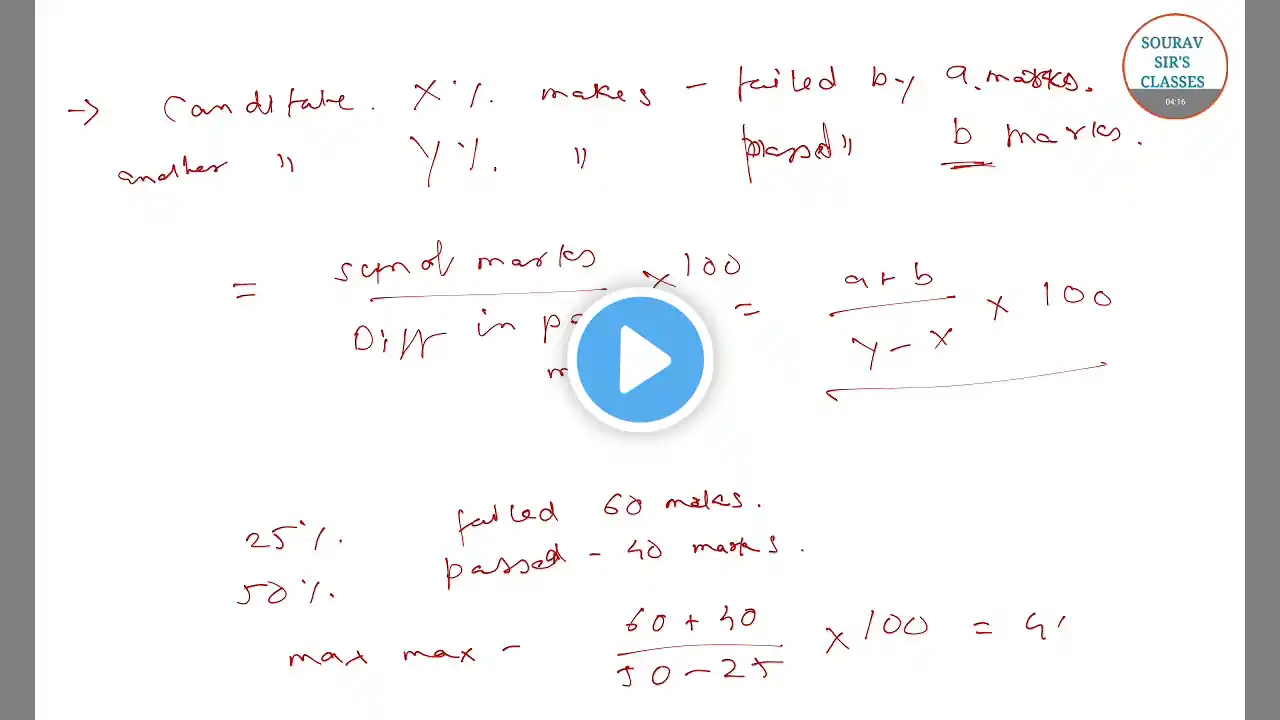 SOURAV
SIR'S
CLASSES
04:16
→ Canditate. X%. makes - failed by a. marks.
another " Y%. " passed " b marks.
= sum of marks / Diff in × 100 = a+b / Y-X × 100
25%. failed 60 makes.
50%. passed - 40 marks.
max max - 60+40 / 50-25 × 100 =